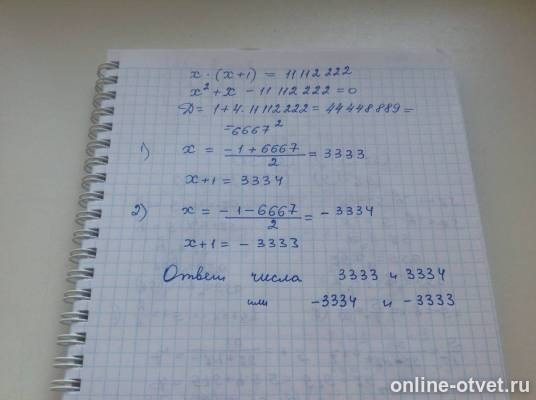 x · (x+1) = 11112222
x² + x - 11112222 = 0
D = 1 + 4 · 11112222 = 44448889 =
= 6667²
1) x = (-1 + 6667)/2 = 3333
x+1 = 3334
2) x = (-1 - 6667)/2 = -3334
x+1 = -3333
Ответ числа 3333 и 3334
или -3334 и -3333
online-otvet.ru